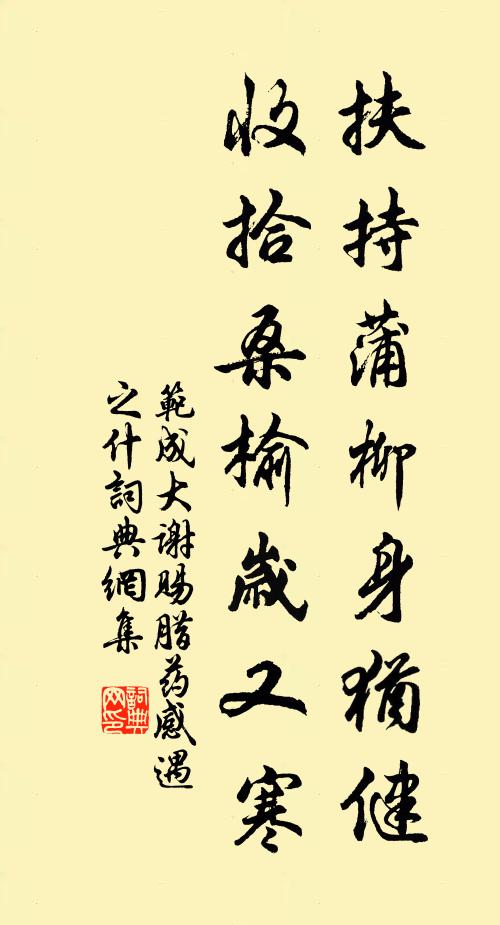 扶持蒲柳身猶健
收拾桑榆歲又寒
範成大謝賜腊药感遇
之什詞典網集
詞典
网印